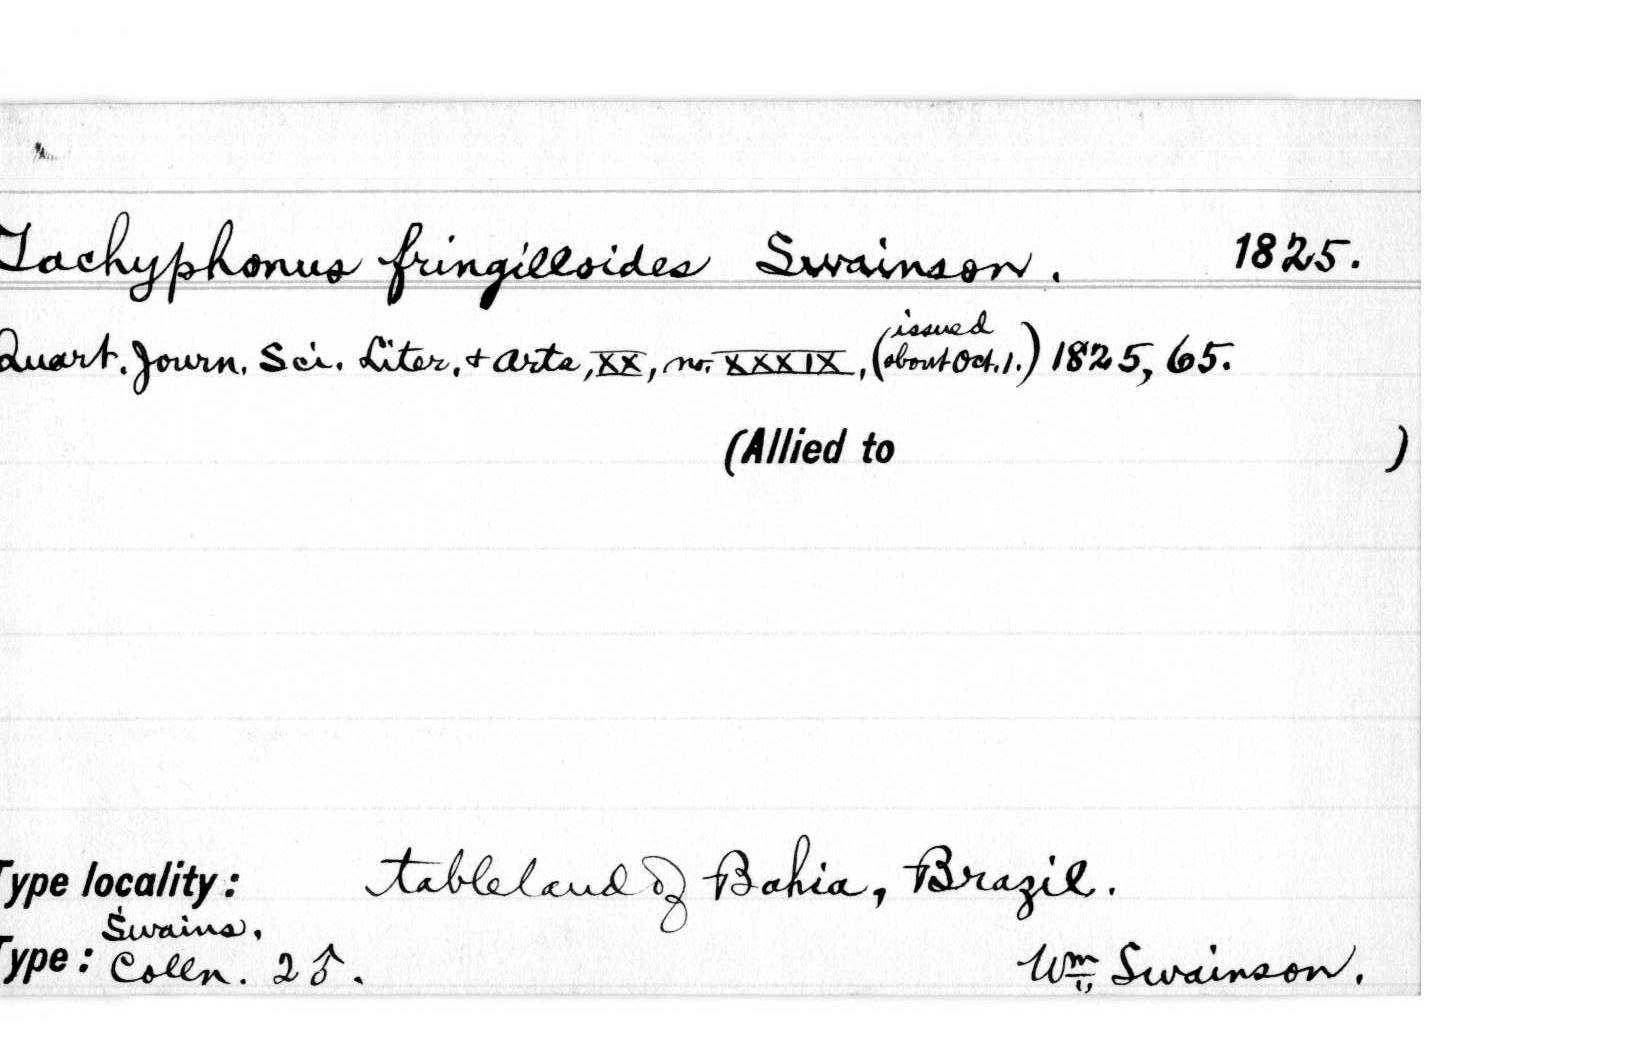 Tachyphonus fringilloides Swainson. 1825.
Quart. Journ. Sci. Liter. & Arts, XX, no. XXXIX, (issued about Oct. 1.) 1825, 65.
(Allied to )
Type locality: tableland of Bahia, Brazil.
Type: Swains. Colln. 2♂. Wm. Swainson.